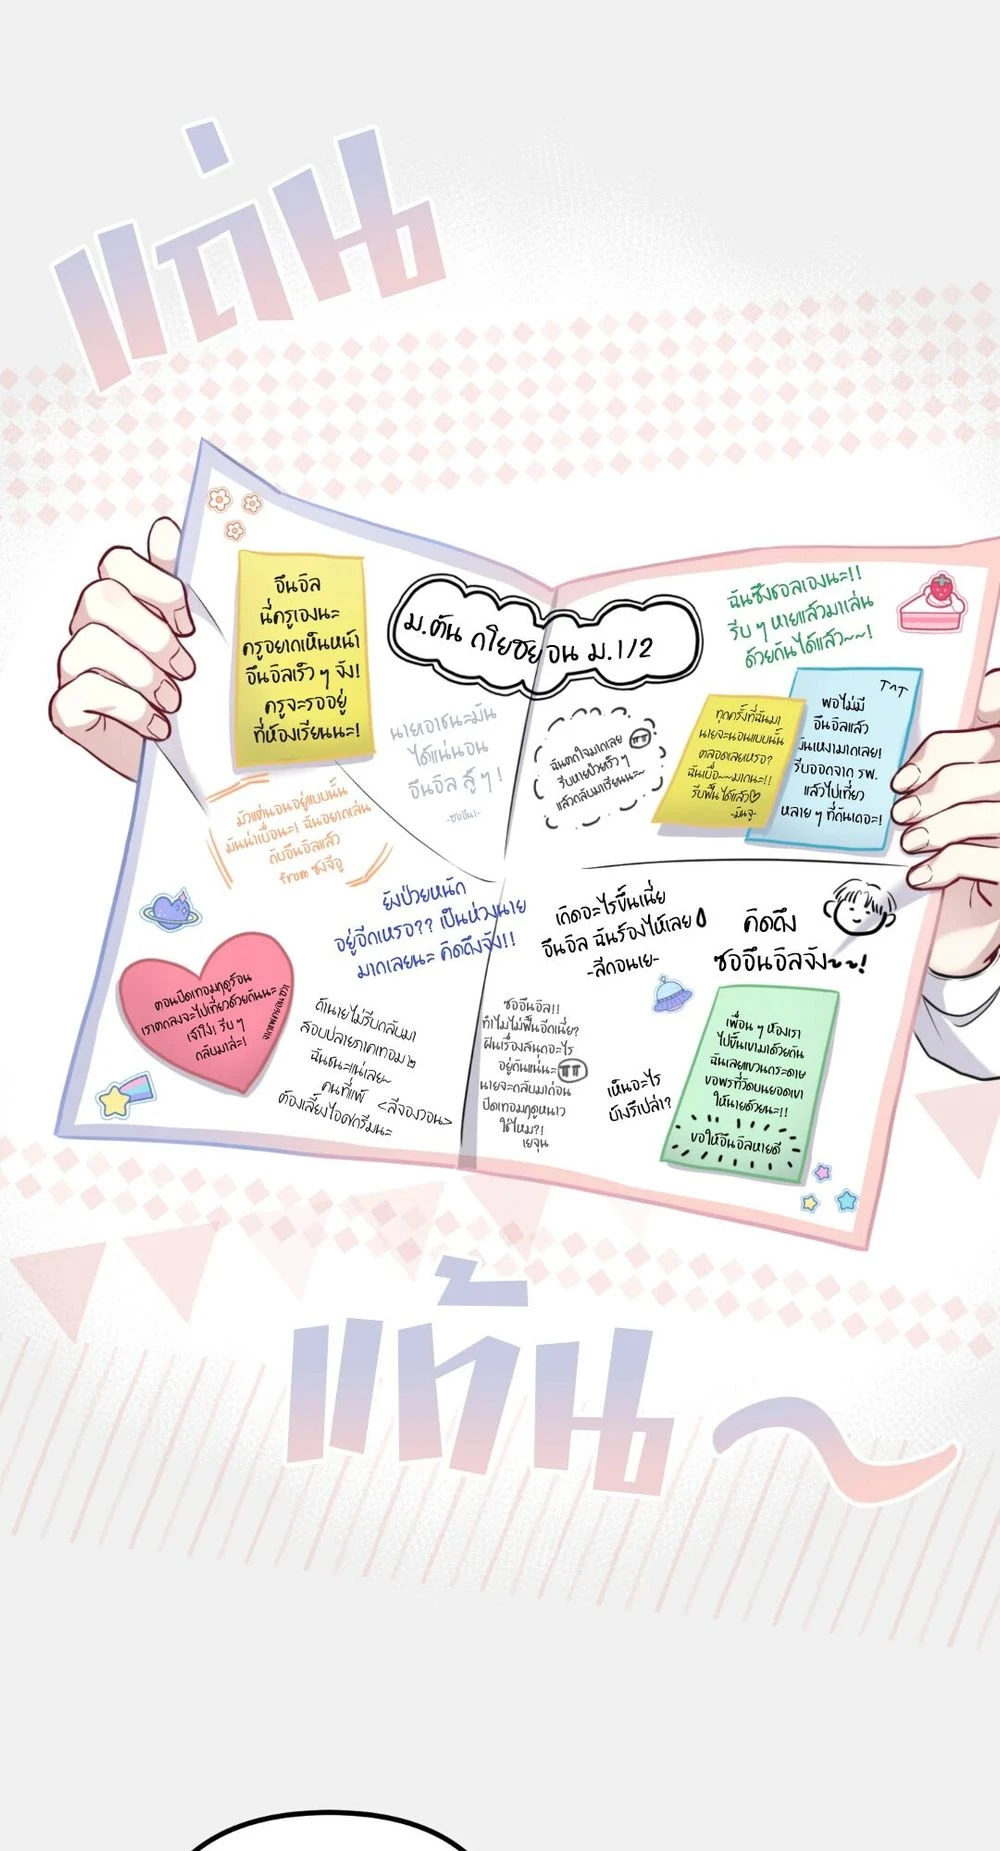 แถ่น
ม.ต้น ดโยซอยอน ม.1/2
อึนอิล
นี่ครูเองนะ
ครูอยากเห็นหน้า
อึนอิลเร็ว ๆ จัง!
ครูจะรออยู่
ที่ห้องเรียนนะ!
นายเอาชนะมัน
ได้แน่นอน
อึนอิล สู้ ๆ !
มัวแต่นอนอยู่แบบนั้น
มันน่าเบื่อนะ! ฉันอยากเล่น
กับอึนอิลแล้ว
from ซงจีอู
ยังป่วยหนัก
อยู่อีกเหรอ?? เป็นห่วงนาย
มากเลยนะ คิดถึงจัง!!
ตอนปิดเทอมฤดูร้อน
เราตกลงจะไปเที่ยวด้วยกันนะ
เจ้าโง่! รีบ ๆ
กลับมาล่ะ!
ถ้านายไม่รีบกลับมา
สอบปลายภาคเทอม ๒
ฉันชนะแน่เลย~
คนที่แพ้ <ลีจองวอน>
ต้องเลี้ยงไอศกรีมนะ
ฉันซึงฮอลเองนะ!!
รีบ ๆ หายแล้วมาเล่น
ด้วยกันได้แล้ว~~!
ฉันตกใจมากเลย ㅠㅠ
รีบหายป่วยเร็ว ๆ
แล้วกลับมาเรียนนะ~
ทุกครั้งที่ฉันมา
นายจะนอนแบบนั้น
ตลอดเลยเหรอ?
ฉันเบื่อ~~มากนะ!!
รีบฟื้นได้แล้ว♡
-มันจู-
T^T
พอไม่มี
อึนอิลแล้ว
ฉันเหงามากเลย!
รีบออกจาก รพ.
แล้วไปเที่ยว
หลาย ๆ ที่กันเถอะ!
เกิดอะไรขึ้นเนี่ย
อึนอิล ฉันร้องไห้เลย
-ลีกอนเย-
คิดถึง
ซออึนอิลจัง~~!
ซออึนอิล!!
ทำไมไม่ฟื้นอีกเนี่ย?
ฝันเรื่องสนุกอะไร
อยู่กันแน่นะ ㅠㅠ
นายจะกลับมาก่อน
ปิดเทอมฤดูหนาว
ใช่ไหม?!
เยจุน
เห็นอะไร
บ้างรึเปล่า?
เพื่อน ๆ ห้องเรา
ไปขึ้นเขามาด้วยกัน
ฉันเลยแขวนกระดาษ
ขอพรที่วัดบนยอดเขา
ให้นายด้วยนะ!!
ขอให้อึนอิลหายดี
แท้น~